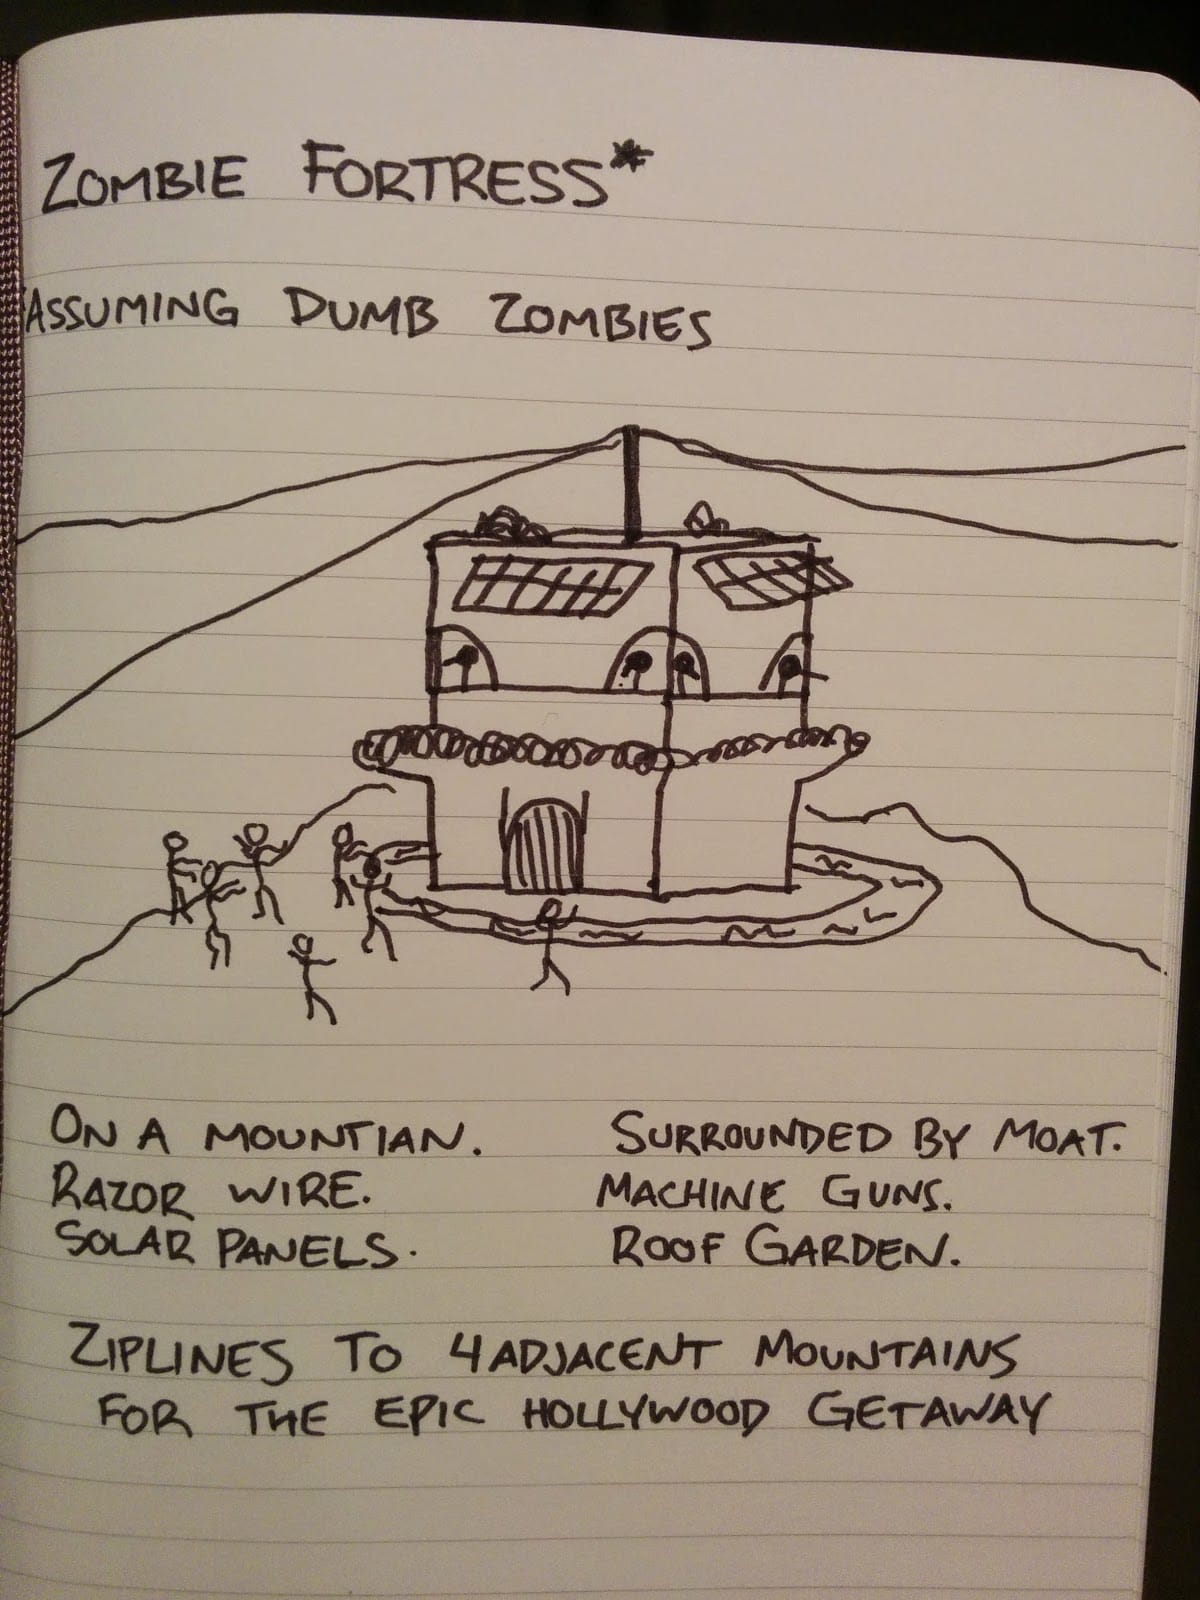 ZOMBIE FORTRESS*
*ASSUMING DUMB ZOMBIES
ON A MOUNTIAN.
RAZOR WIRE.
SOLAR PANELS.
SURROUNDED BY MOAT.
MACHINE GUNS.
ROOF GARDEN.
ZIPLINES TO 4 ADJACENT MOUNTAINS
FOR THE EPIC HOLLYWOOD GETAWAY